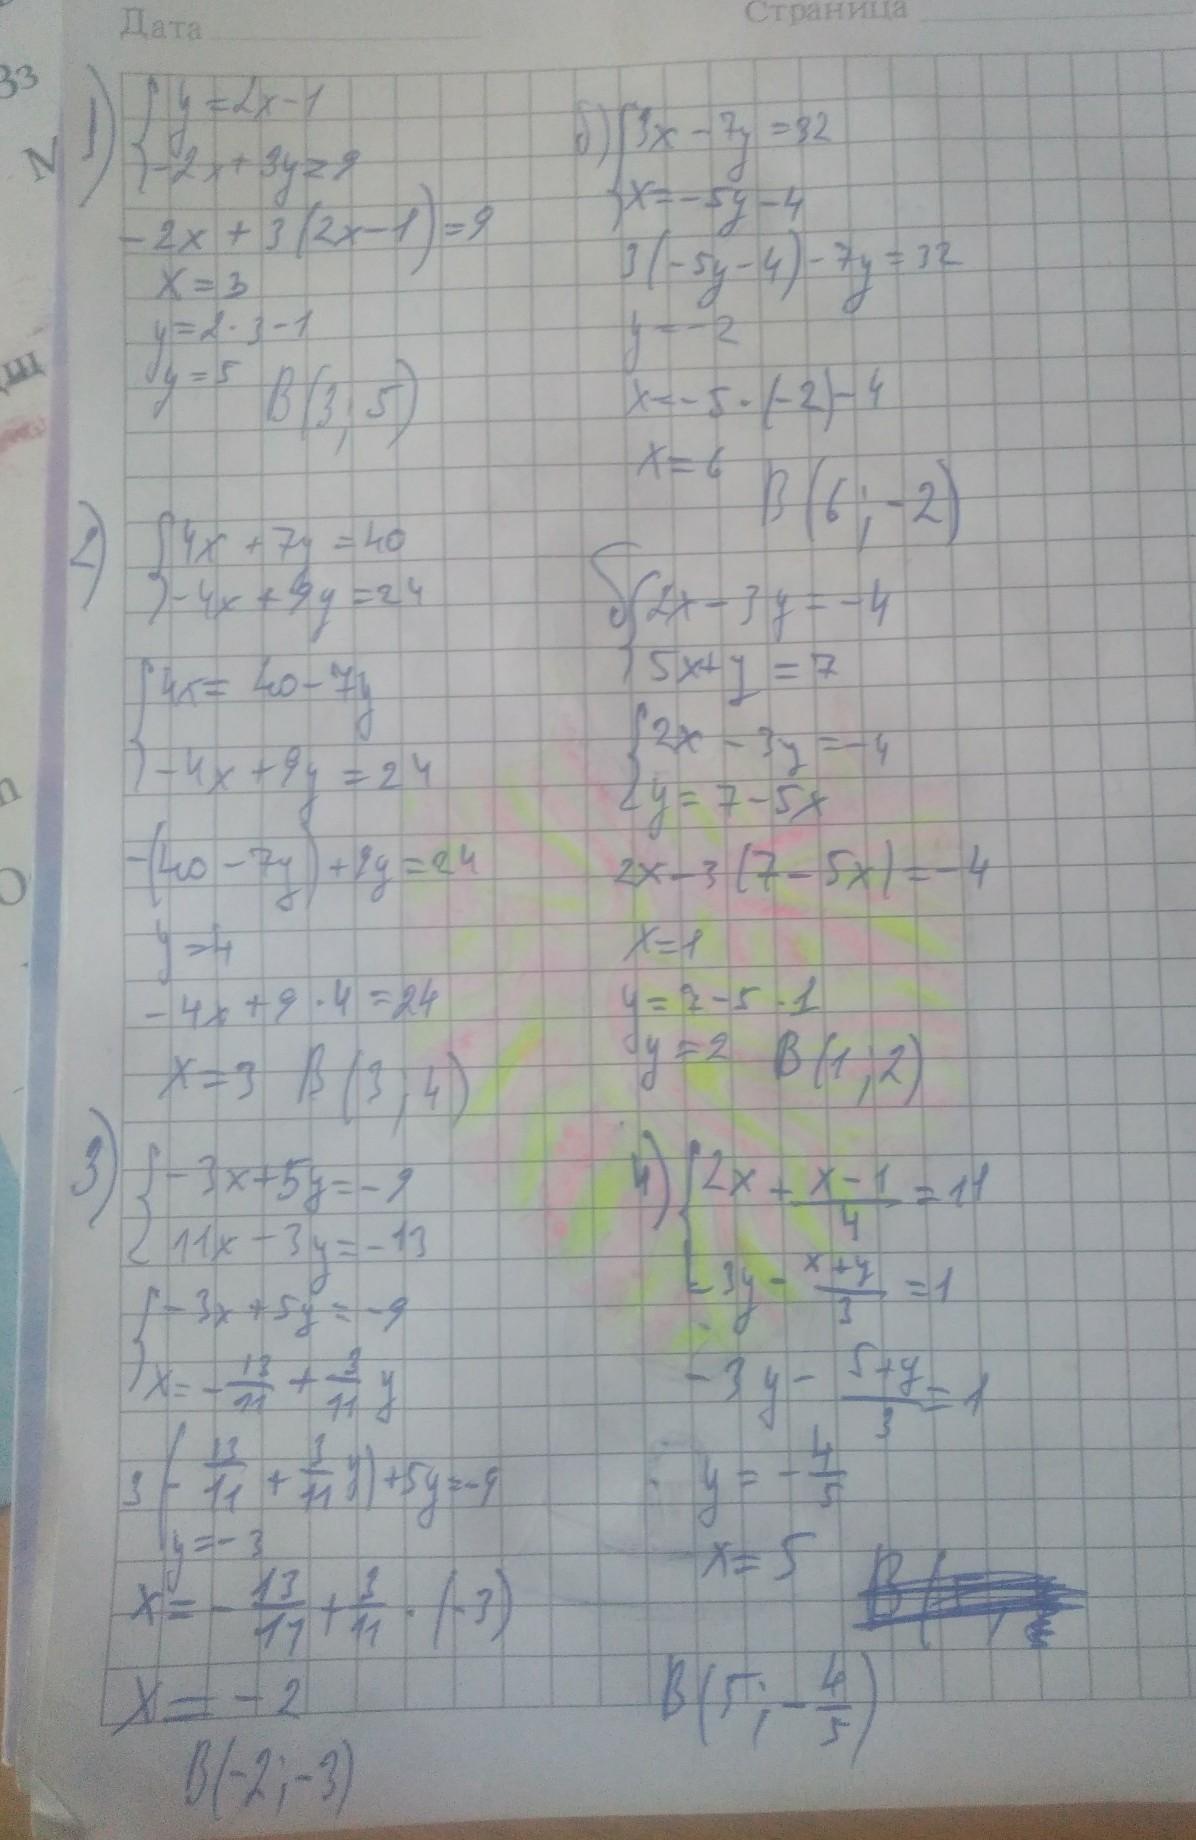 Дата
Страница
1) { y = 2x - 1
-2x + 3y = 9
-2x + 3(2x-1) = 9
x = 3
y = 2 · 3 - 1
y = 5 B(3; 5)
б) { 3x - 7y = 32
x = -5y - 4
3(-5y - 4) - 7y = 32
y = -2
x = -5 · (-2) - 4
x = 6
B(6; -2)
2) { 4x + 7y = 40
-4x + 9y = 24
{ 4x = 40 - 7y
-4x + 9y = 24
-(40 - 7y) + 9y = 24
y = 4
-4x + 9 · 4 = 24
x = 3 B(3; 4)
б { 2x - 3y = -4
5x + y = 7
{ 2x - 3y = -4
y = 7 - 5x
2x - 3(7 - 5x) = -4
x = 1
y = 7 - 5 · 1
y = 2 B(1; 2)
3) { -3x + 5y = -9
11x - 3y = -13
{ -3x + 5y = -9
x = -13/11 + 3/11 y
3(-13/11 + 3/11 y) + 5y = -9
y = -3
x = -13/11 + 3/11 · (-3)
x = -2
B(-2; -3)
4) { 2x + x-1/4 = 11
-3y - x+y/3 = 1
-3y - 5+y/3 = 1
y = -4/5
x = 5
B(5; -4/5)